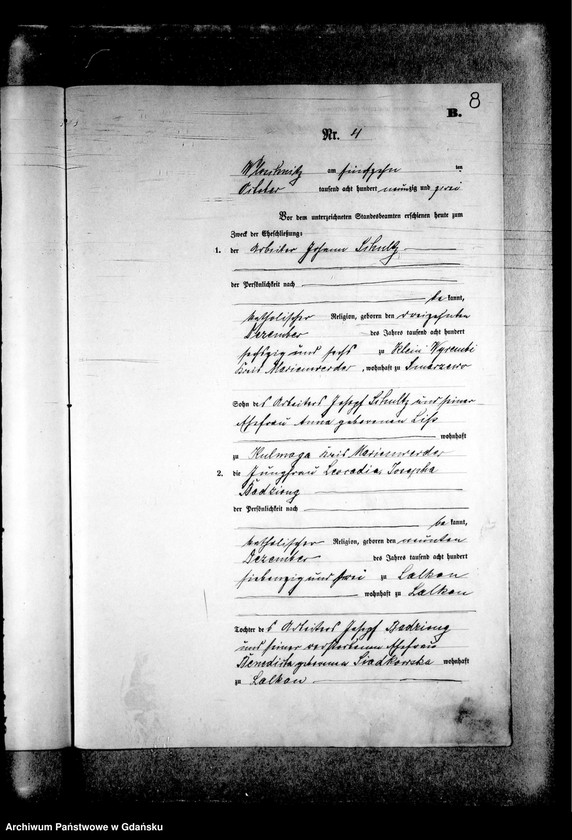 8
B.
Nr. 4
am fünfzehn ten
Oktober tausend acht hundert neunzig und zwei
Vor dem unterzeichneten Standesbeamten erschienen heute zum
Zweck der Eheschließung:
1. der Arbeiter Johann Schultz
der Persönlichkeit nach
be kannt,
katholischer Religion, geboren den dreizehnten
Dezember des Jahres tausend acht hundert
sechszig und sechs zu Klein Wyrembi
Kreis Marienwerder, wohnhaft zu Smarzewo
Sohn des Arbeiters Josef Schultz und seiner
Ehefrau Anna geborenen Liss
wohnhaft
zu Kulmaga Kreis Marienwerder
2. die Jungfrau Leocadia Josepha
Badziong
der Persönlichkeit nach
be kannt,
katholischer Religion, geboren den neunten
Dezember des Jahres tausend acht hundert
siebenzig und zwei zu Lalkau
wohnhaft zu Lalkau
Tochter des Arbeiters Josef Badziong
und seiner verstorbenen Ehefrau
Benedikta geborenen Siadkowska wohnhaft
zu Lalkau
Archiwum Państwowe w Gdańsku